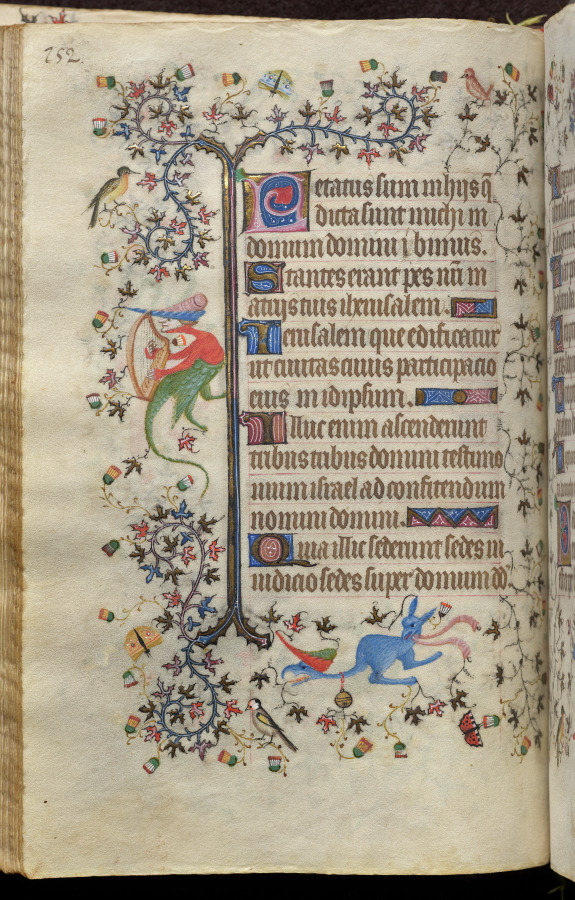 252.
Letatus sum in hijs q̄
dicta sunt michi in
domum domini ibimus.
Stantes erant pedes nr̄i in
atrijs tuis iherusalem.
Ierusalem que edificatur
ut ciuitas cuius participatio
eius in idipsum.
Illuc enim ascenderunt
tribus tribus domini testimo
nium israel ad confitendum
nomini domini.
Quia illic sederunt sedes in
iudicio sedes super domum dd.